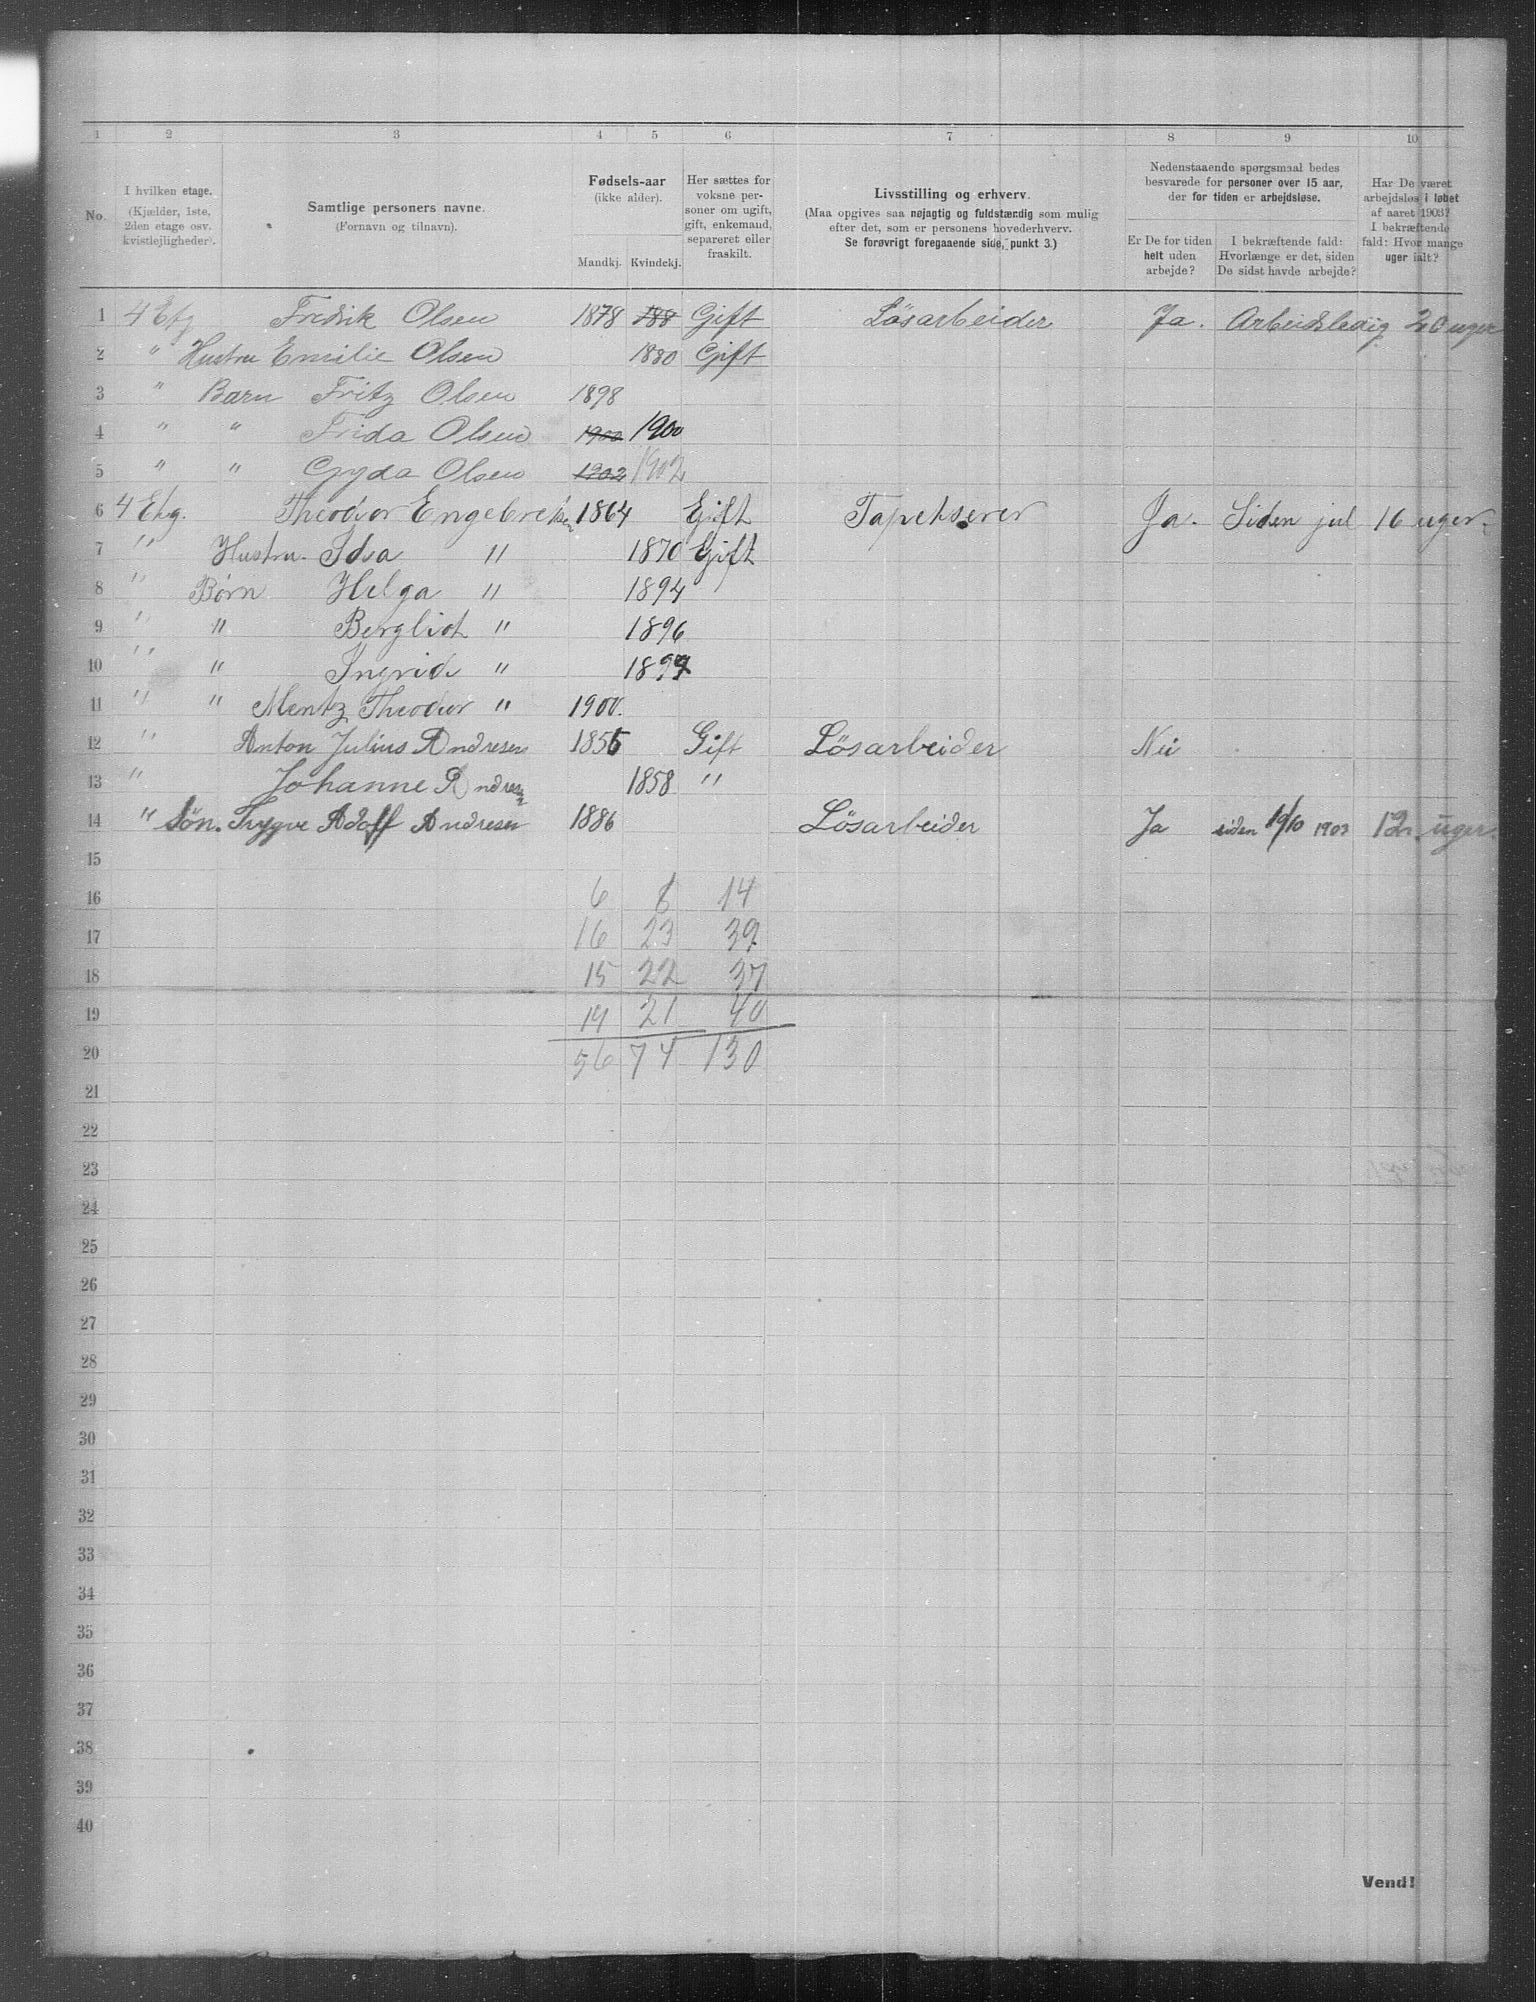 1 2 3 4 5 6 7 8 9 10
No.
I hvilken etage.
(Kjælder, 1ste,
2den etage osv.
kvistlejligheder).
Samtlige personers navne.
(Fornavn og tilnavn).
Fødsels-aar
(ikke alder).
Mandkj. Kvindekj.
Her sættes for
voksne per-
soner om ugift,
gift, enkemand,
separeret eller
fraskilt.
Livsstilling og erhverv.
(Maa opgives saa nøjagtig og fuldstændig som mulig
efter det, som er personens hovederhverv.
Se forøvrigt foregaaende side, punkt 3.)
Nedenstaaende spørgsmaal bedes
besvarede for personer over 15 aar,
der for tiden er arbejdsløse.
Er De for tiden
helt uden
arbejde?
I bekræftende fald:
Hvorlænge er det, siden
De sidst havde arbejde?
Har De været
arbejdsløs i løbet
af aaret 1903?
I bekræftende
fald: Hvor mange
uger ialt?
1 4 Etg Fredrik Olsen 1878 188 Gift Lösarbeider Ja. Arbeidsledig 20 uger
2 " Hustru Emilie Olsen 1880 Gift
3 " Barn Fritz Olsen 1898
4 " " Frida Olsen 1900 1900
5 " " Gyda Olsen 1902 1902
6 4 Etg. Theodor Engebretsen 1864 Gift Tapetserer Ja. Siden jul 16 uger.
7 " Hustru. Ida " 1870 Gift
8 " Børn Helga " 1894
9 " " Bergliot " 1896
10 " " Ingrid "
11 " " Mentz Theodor " 1900.
12 " Anton Julius Andresen 1855 Gift Lösarbeider Nei
13 " Johanne Andresen 1858 "
14 " Sön. Trygve Adolf Andresen 1886 Lösarbeider Ja siden 10/10 1903 12. uger.
15
16 6 8 14
17 16 23 39
18 15 22 37
19 19 21 40
20 56 74 130
21
22
23
24
25
26
27
28
29
30
31
32
33
34
35
36
37
38
39
40
Vend!